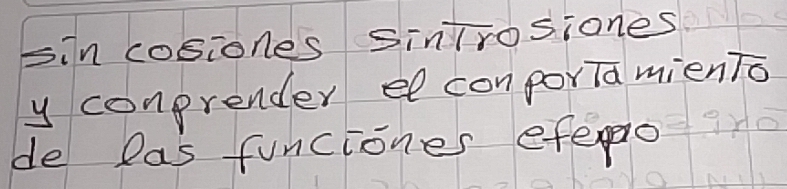 sin cosiones sintrosiones
y conprender el conportamiento
de las funciónes